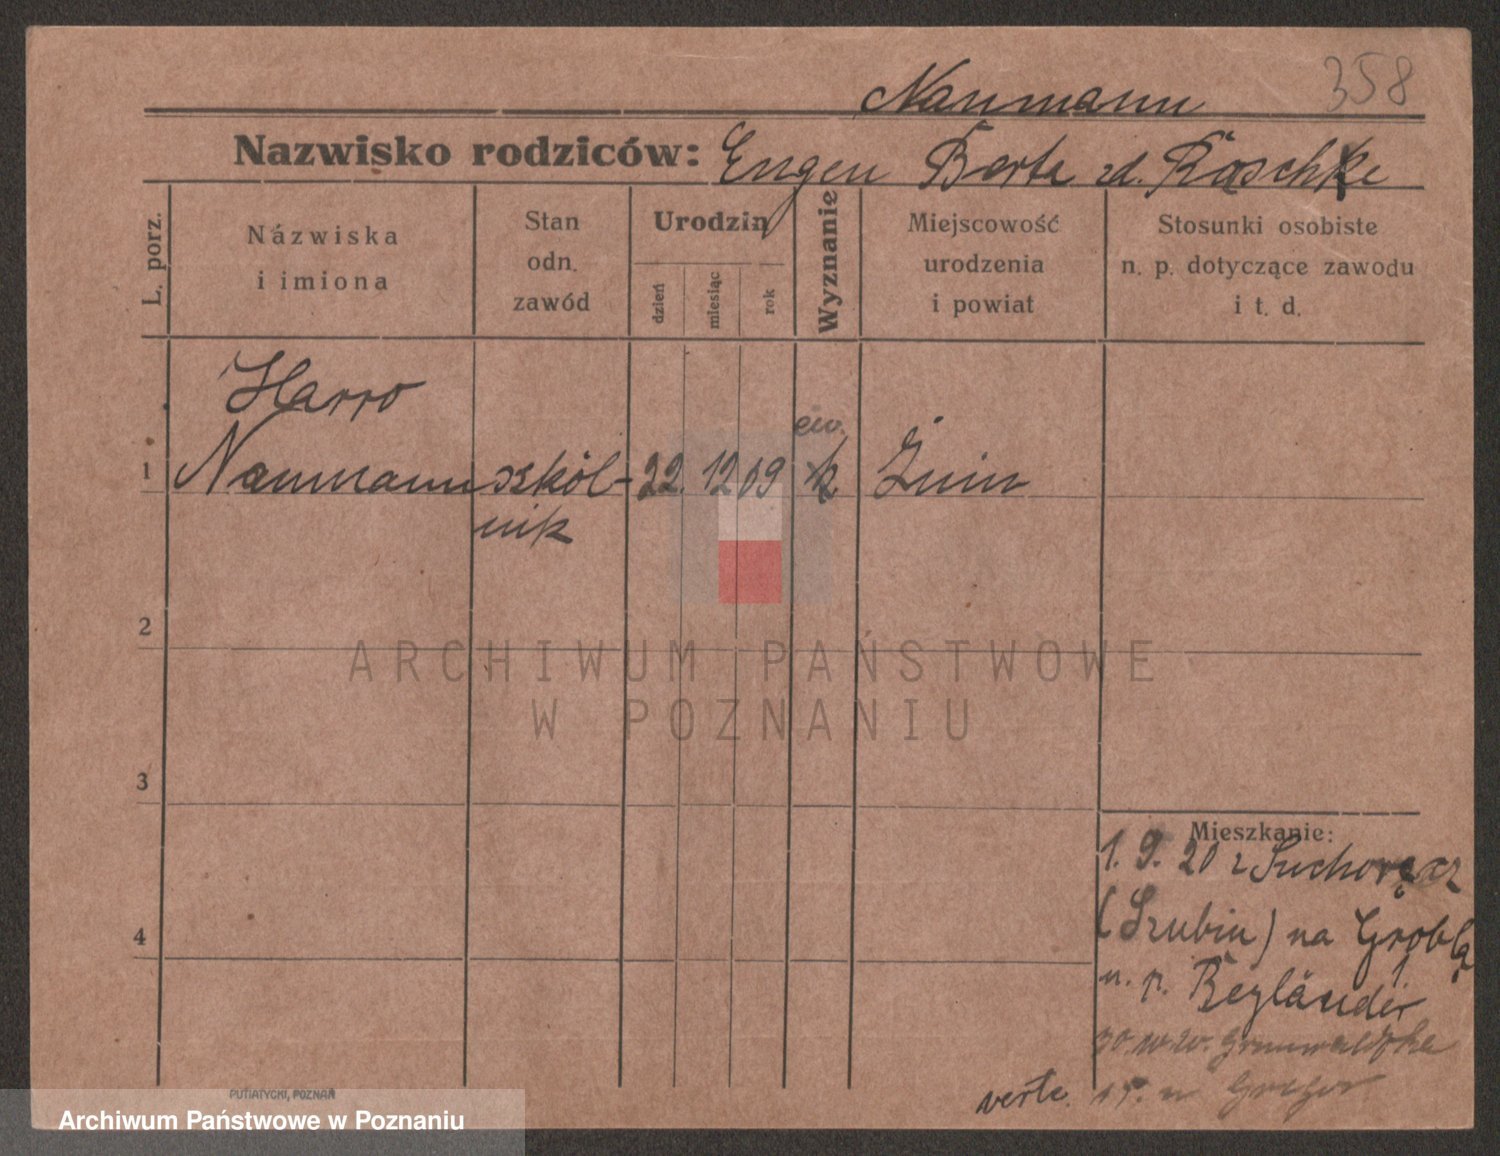 358
Naumann
Nazwisko rodziców: Eugen Berta zd. Raschke
L. porz.
Názwiska
i imiona
Stan
odn.
zawód
Urodzin
dzień
miesiąc
rok
Wyznanie
Miejscowość
urodzenia
i powiat
Stosunki osobiste
n. p. dotyczące zawodu
i t. d.
Harro
ew.
1 Naumann szkól- 22. 12 09 k Żnin
nik
2
3
4
ARCHIWUM PAŃSTWOWE
W POZNANIU
Mieszkanie:
1. 9. 20 z Suchoręcz
(Szubin) na Groblą
u. p.
Grunwaldzka
verte. 15. Gregor
PUTIATYCKI, POZNAŃ
Archiwum Państwowe w Poznaniu